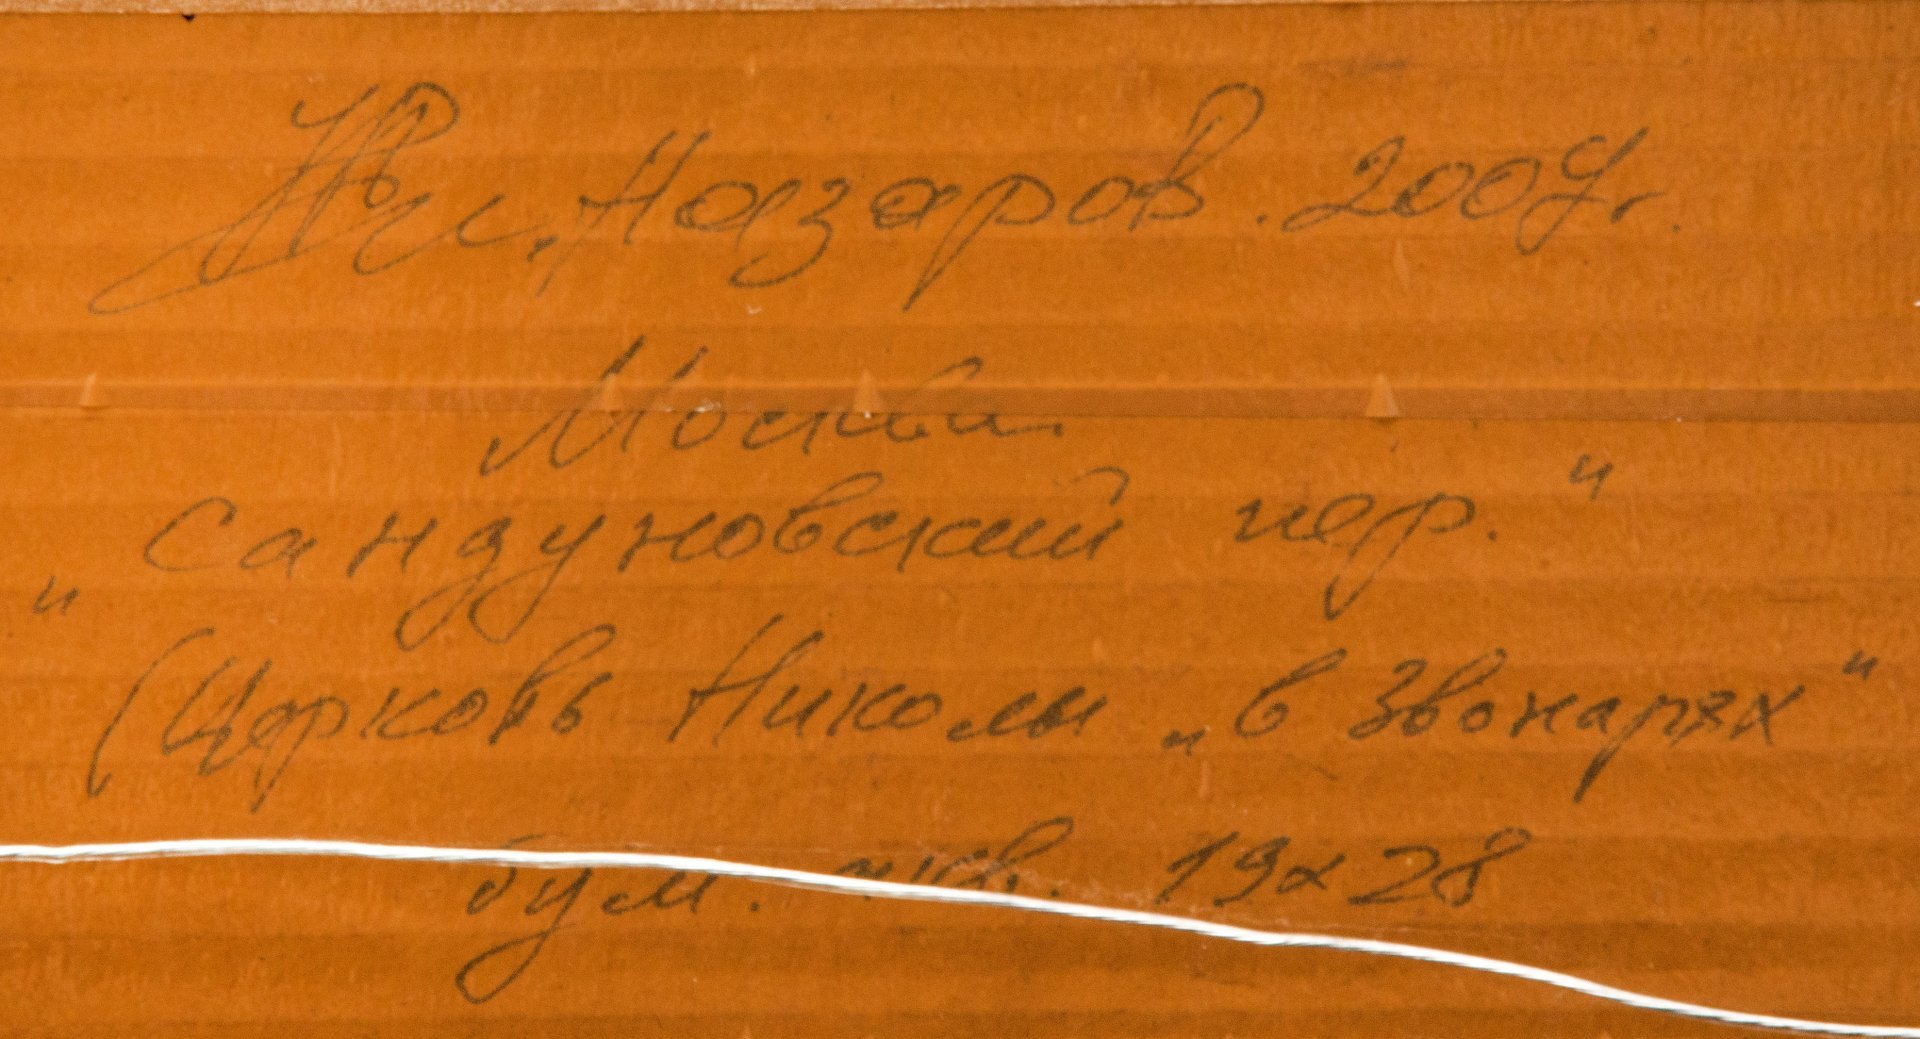 Назаров.
Москва.
„Сандуновский пер."
(Церковь Николы „в Звонарях"
бум. акв. 19х28